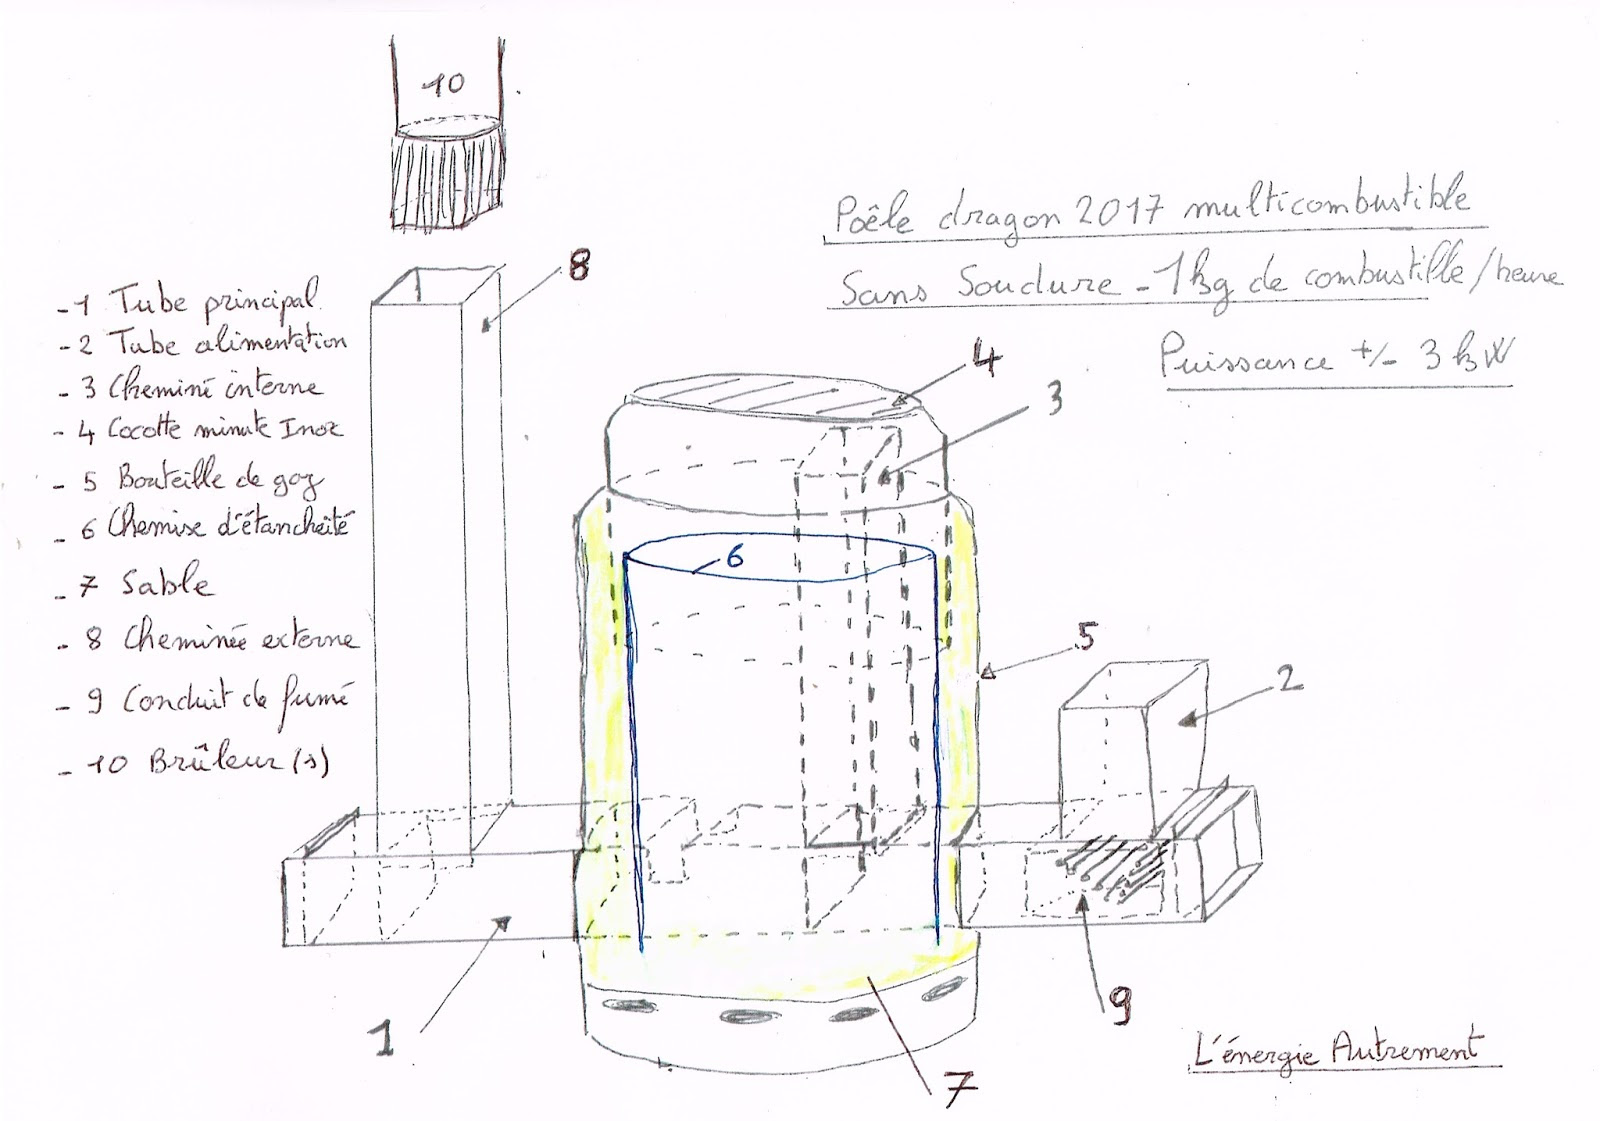 10
Poêle dragon 2017 multicombustible
Sans Soudure - 1kg de combustille/heure
Puissance +/- 3 kW
- 1 Tube principal
- 2 Tube alimentation
- 3 Cheminé interne
- 4 Cocotte minute Inox
- 5 Bouteille de gaz
- 6 Chemise d'étanchéité
- 7 Sable
- 8 Cheminée externe
- 9 Conduit de fumé
- 10 Brûleur(s)
8
4
3
6
5
2
1
9
7
L'énergie Autrement